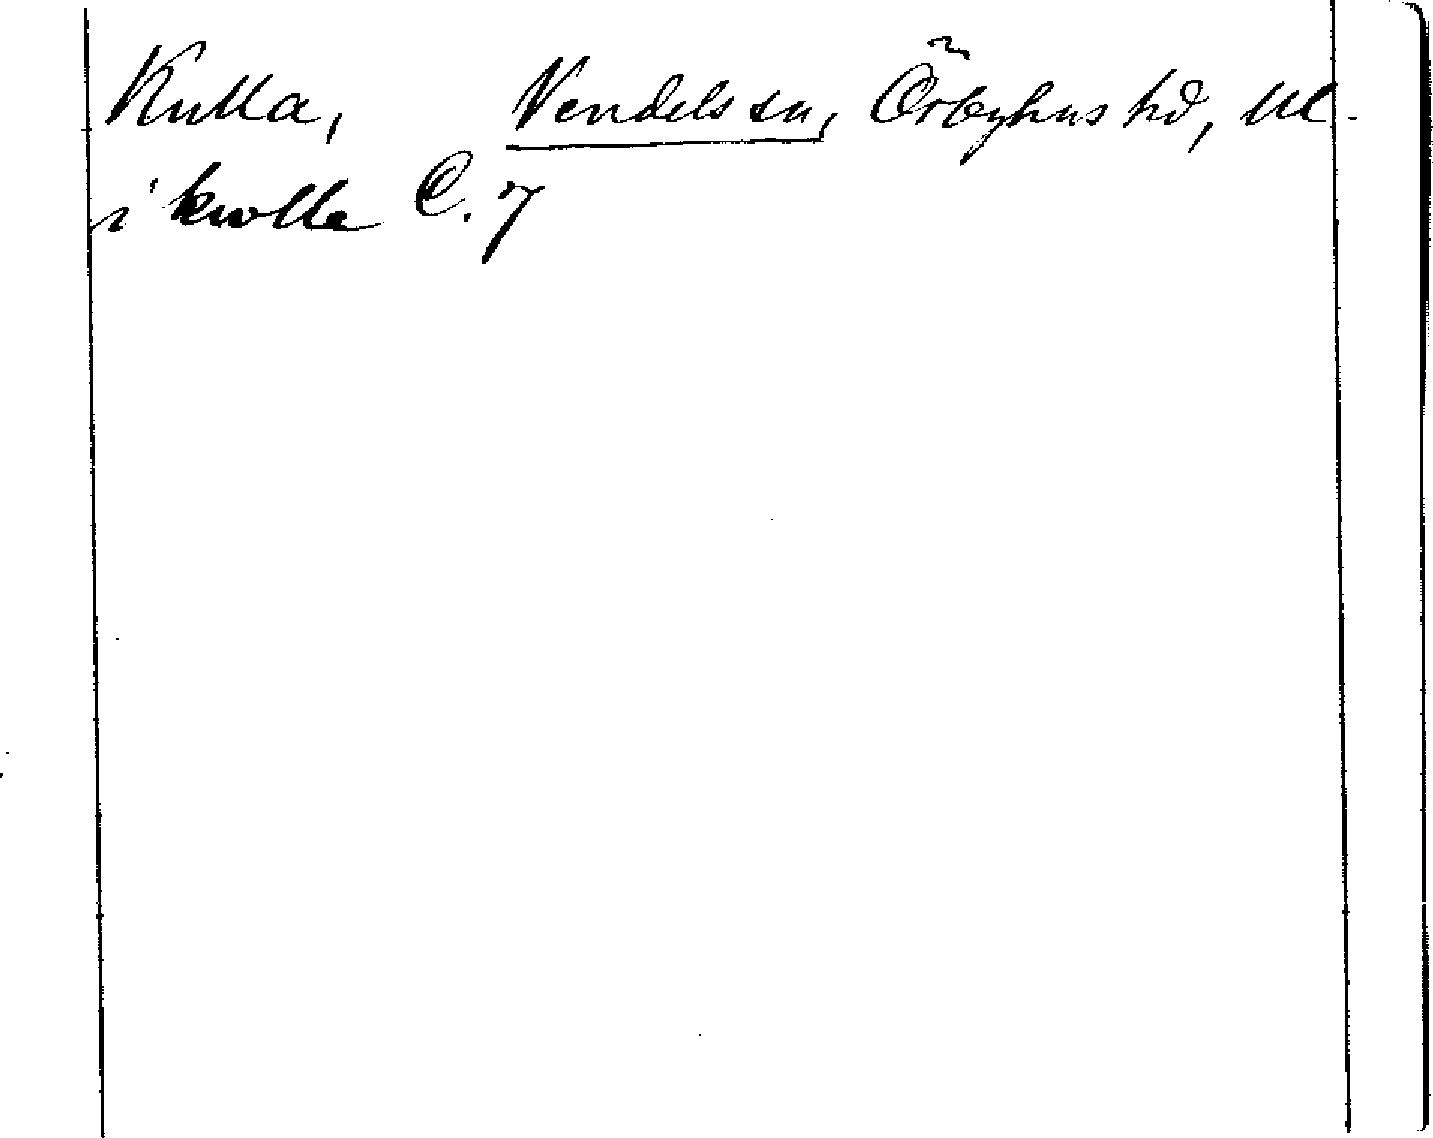 Kulla, Vendels sn, Örbyhus hd, Ul.
i kwlla C. 7